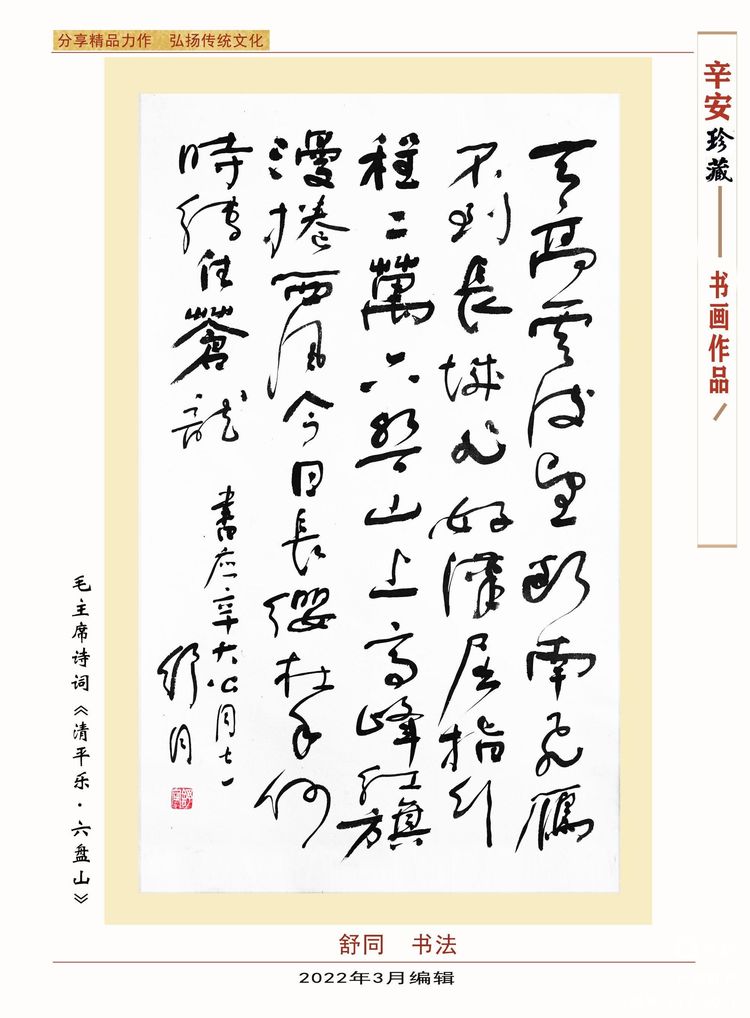 分享精品力作 弘扬传统文化
辛安珍藏——书画作品/
天高雲淡望斷南飛雁
不到長城非好漢屈指行
程二萬六盤山上高峰紅旗
漫捲西風今日長纓在手何
時縛住蒼龍
書應
舒同
毛主席诗词《清平乐·六盘山》
舒同 书法
2022年3月编辑